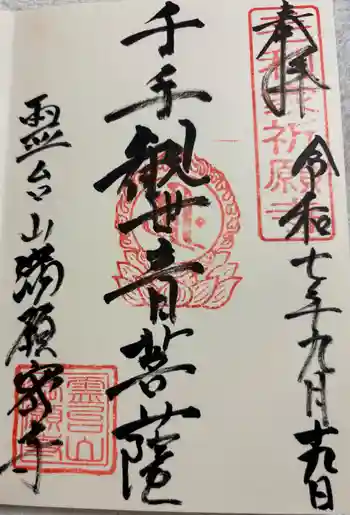 奉拝
令和七年九月十九日
祈願寺
千手観世音菩薩
霊台山満願密寺
靈台山